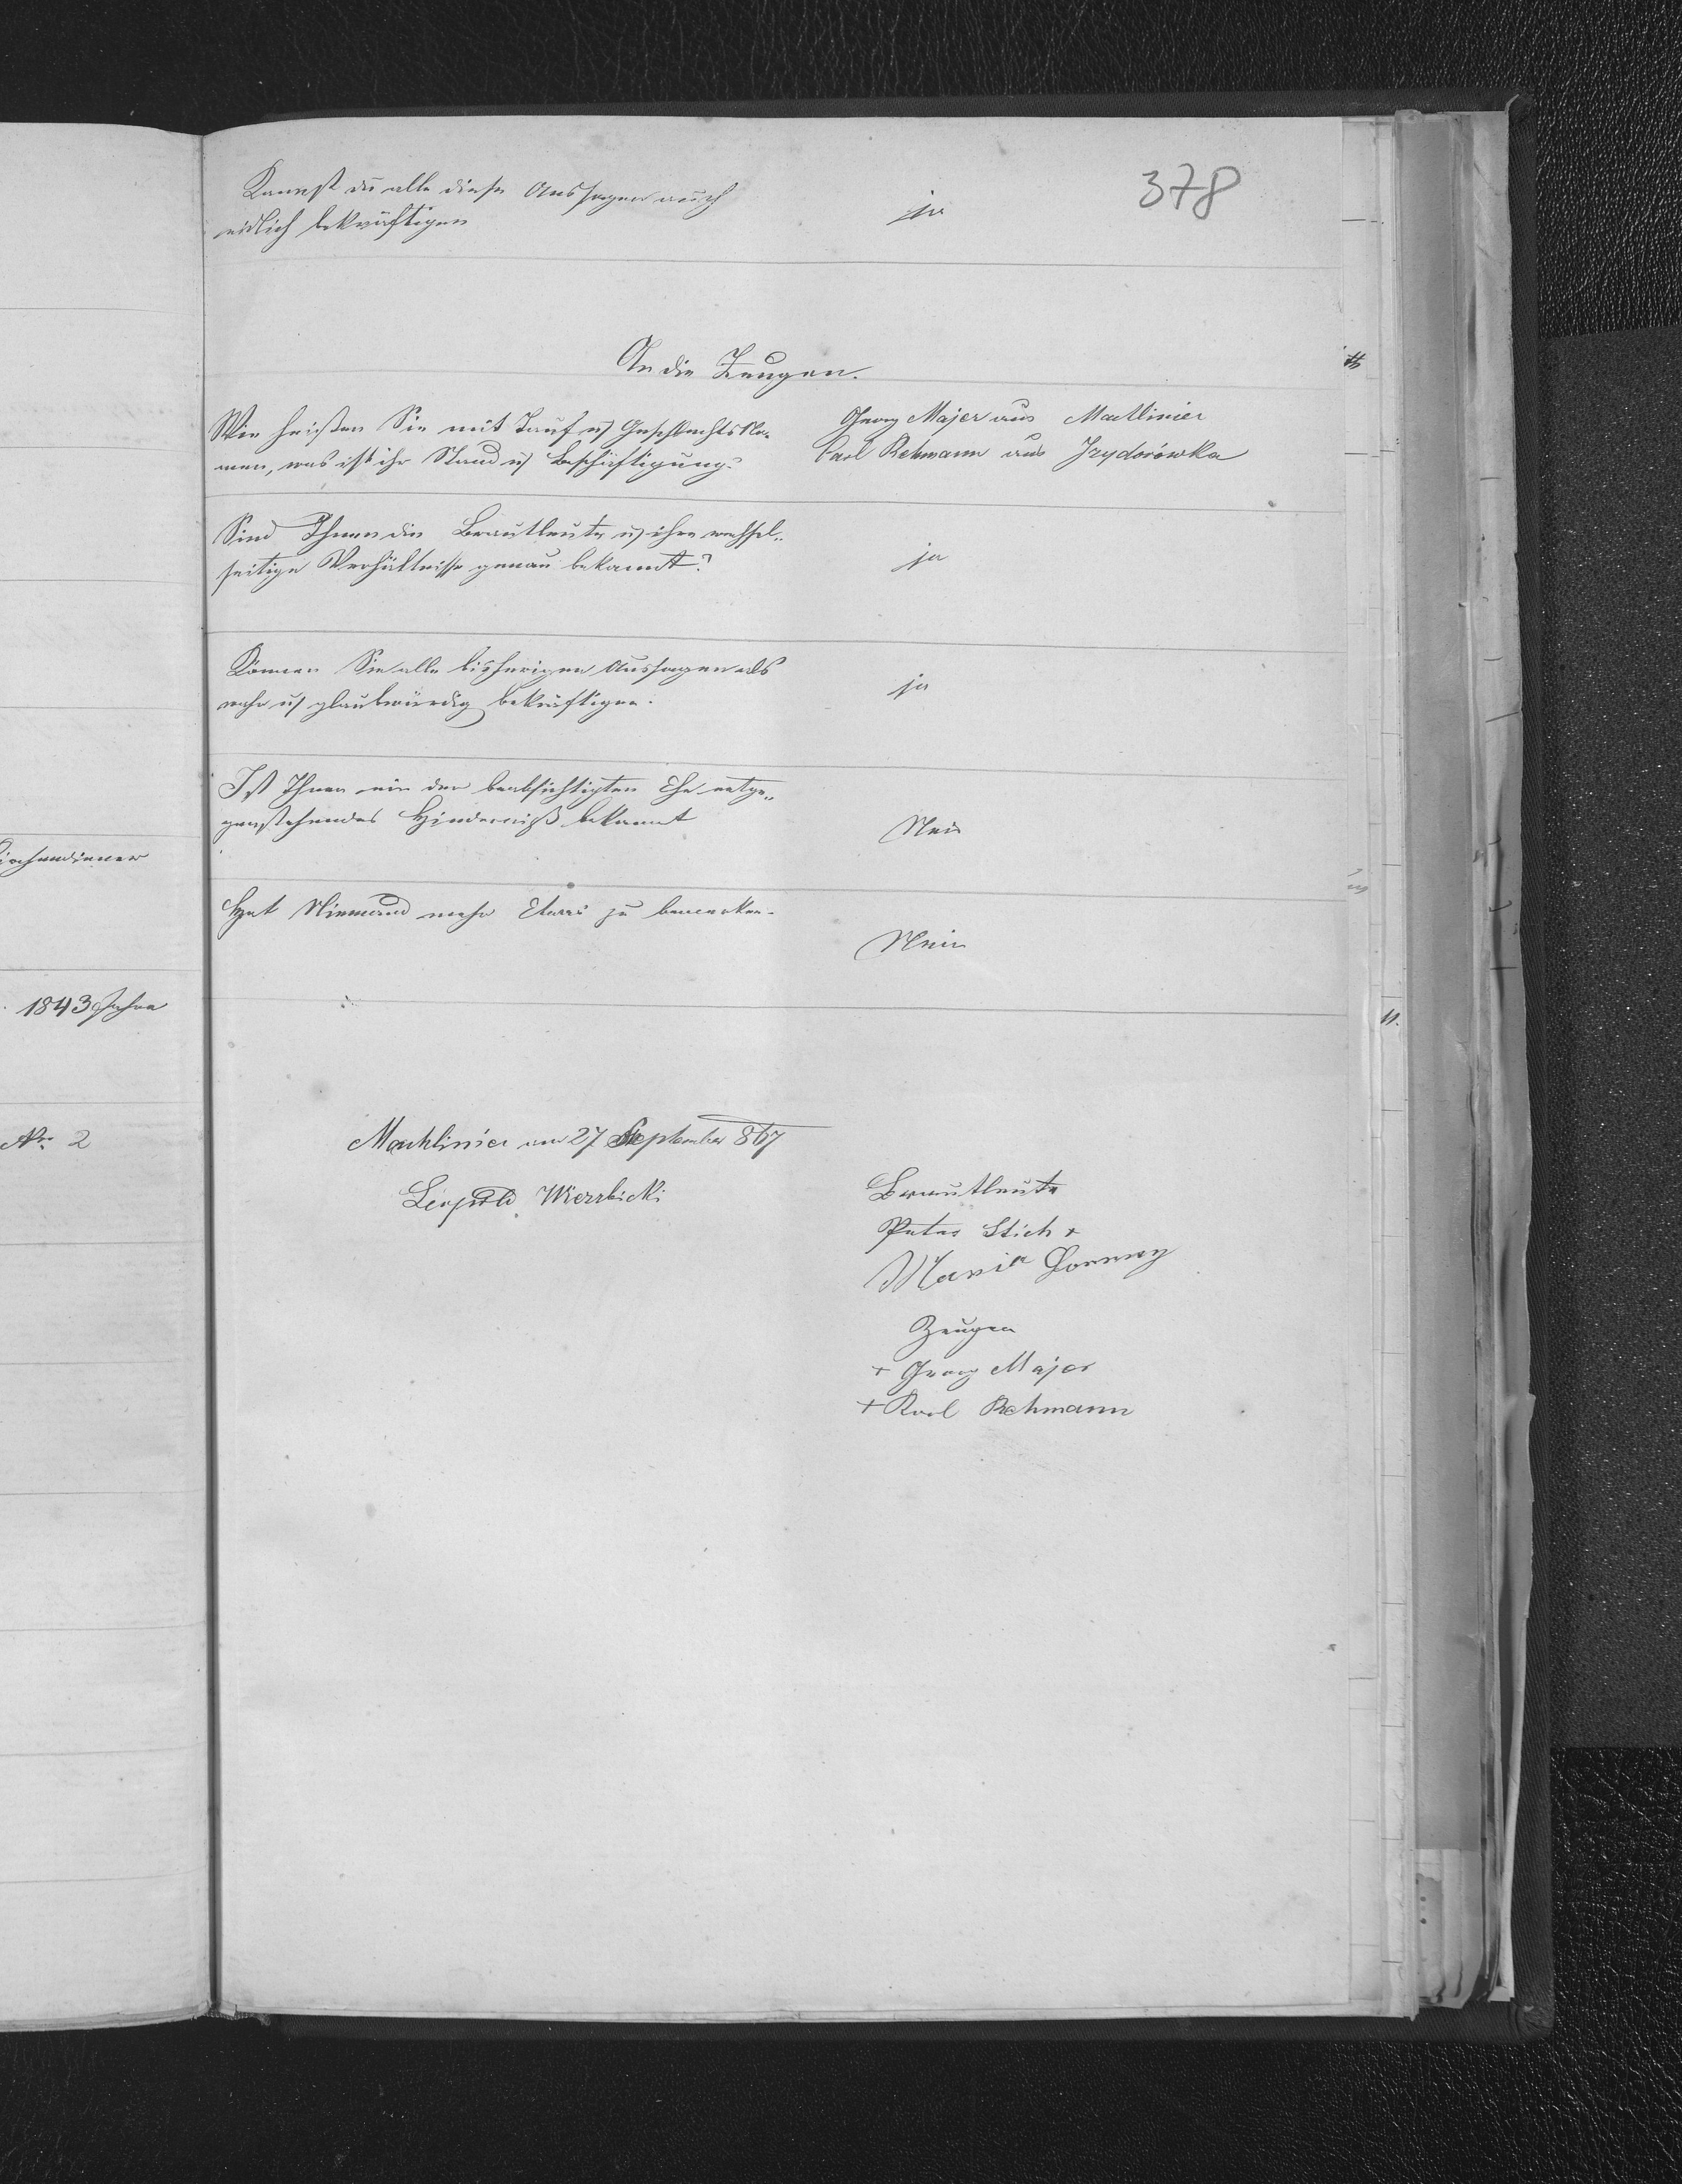 378
Kannst du alle diese Aussagen auch
eidlich bekräftigen
ja
An die Zeugen.
Wie heißen Sie mit Tauf u/ Geschlechtsna-
men, was ist ihr Stand u/ Beschäftigung?
Georg Majer aus
Carl Rehmann aus Izydorówka
Sind Ihnen die Brautleute u/ ihre wechsel-
seitige Verhältnisse genau bekannt?
ja
Können Sie alle bisherigen Aussagen als
wahr u/ glaubwürdig bekräftigen.
ja
Ist Ihnen ein der beabsichtigten Ehe entge-
genstehendes Hinderniß bekannt
Nein
Hat Niemand mehr Etwas zu bemerken-
Nein
Kirchendiener
1843 Jahre
No 2
Machliniec am 27 September 867
Leopold Wierzbicki
Brautleute
Peter Stich +
Maria
Zeugen
+ Georg Majer
+ Karl Rehmann